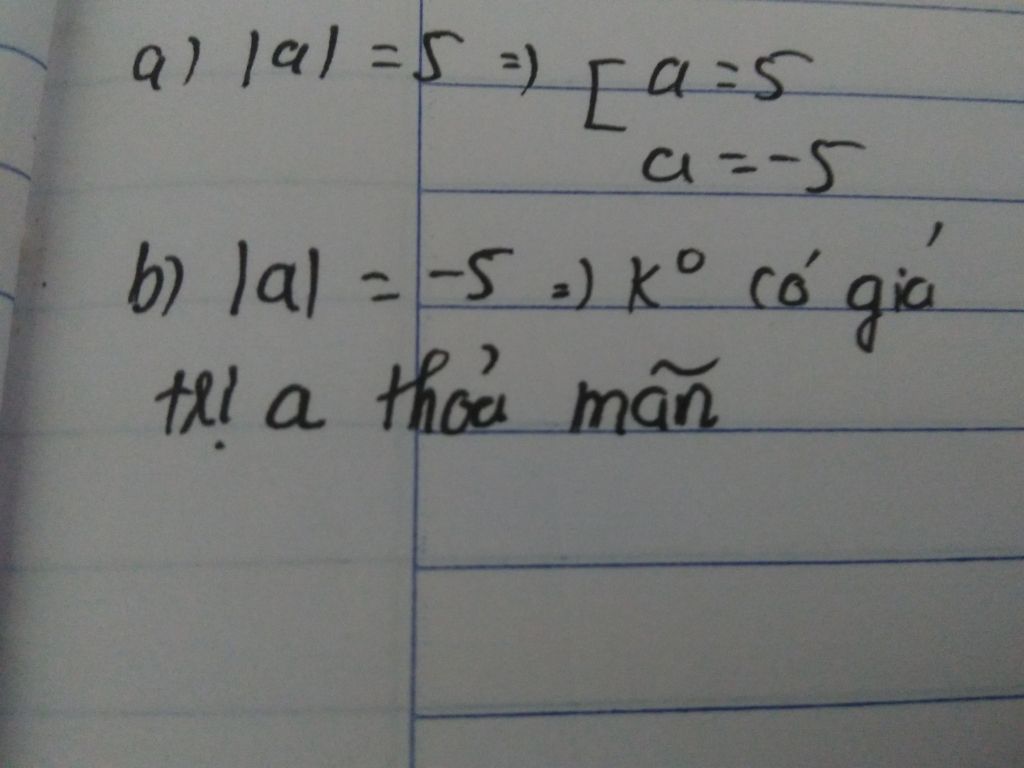 a) |a| = 5 => [ a = 5
a = -5
b) |a| = -5 => K° có giá
trị a thỏa mãn